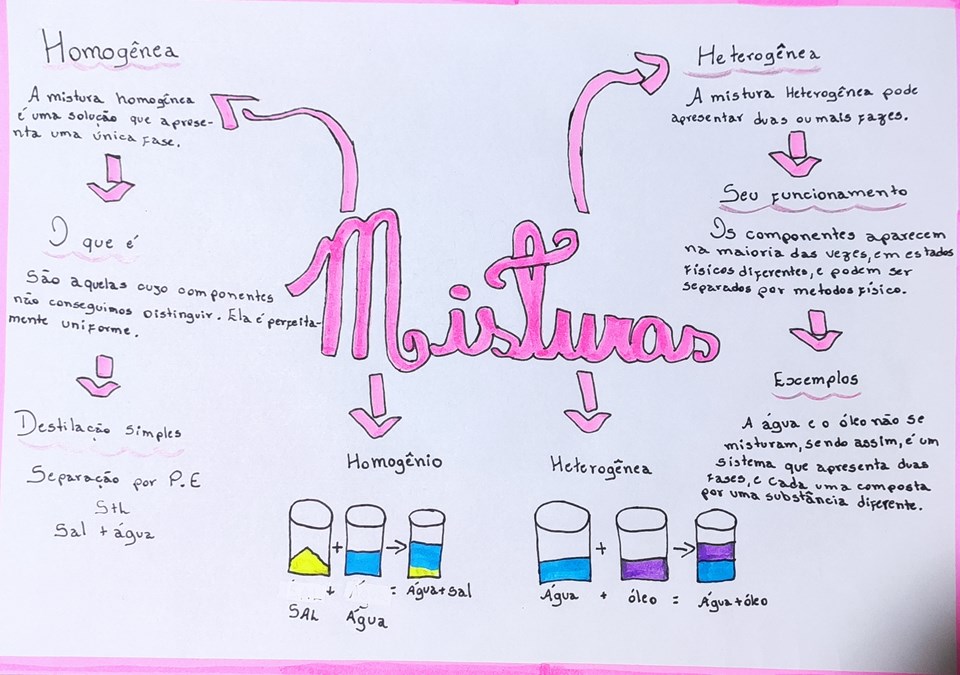 Homogênea
A mistura homogênea
é uma solução que aprese-
nta uma única fase.
O que é
São aquelas cuzo componentes
não conseguimos Distinguir. Ela é perfeita-
mente uniforme.
Destilação Simples
Separação por P.E
S+L
Sal + água
Misturas
Heterogênea
A mistura Heterogênea pode
apresentar duas ou mais fazes.
Seu funcionamento
Os componentes aparecem
na maioria das vezes, em estados
físicos diferentes, e podem ser
separados por metodos físico.
Excemplos
A água e o óleo não se
misturam, sendo assim, é um
sistema que apresenta duas
fases, e cada uma composta
por uma substância diferente.
Homogênio
+ →
+ = Água + sal
SAL Água
Heterogênea
+ →
Água + óleo = Água + óleo